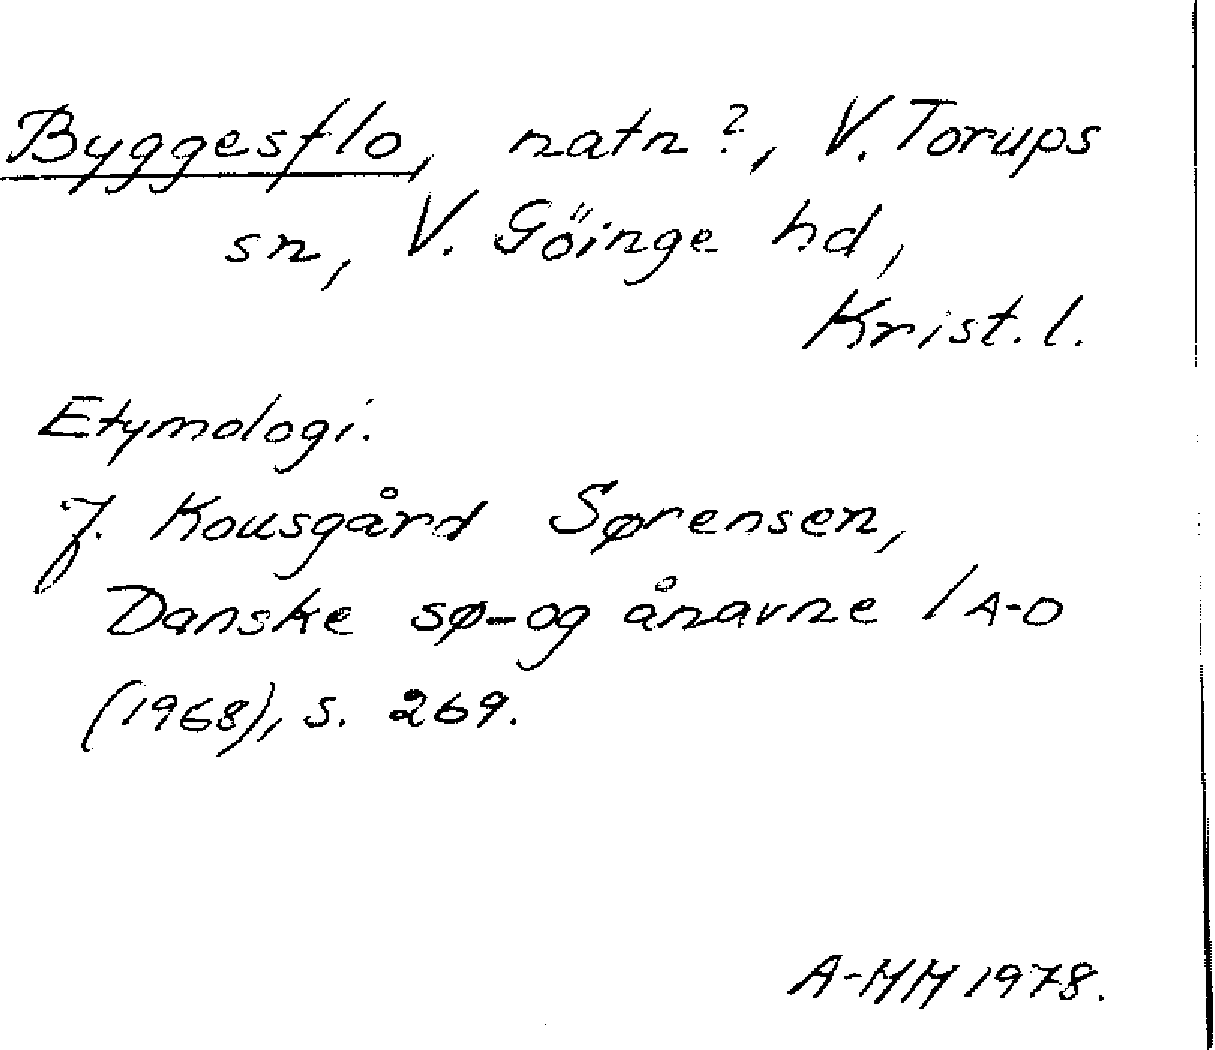 Byggesflo, natn?, V. Torups
sn, V. Göinge hd,
Krist. l.
Etymologi.
J. Kousgård Sørensen,
Danske sø- og ånavne 1 A-D
(1968), s. 269.
A-MM 1978.